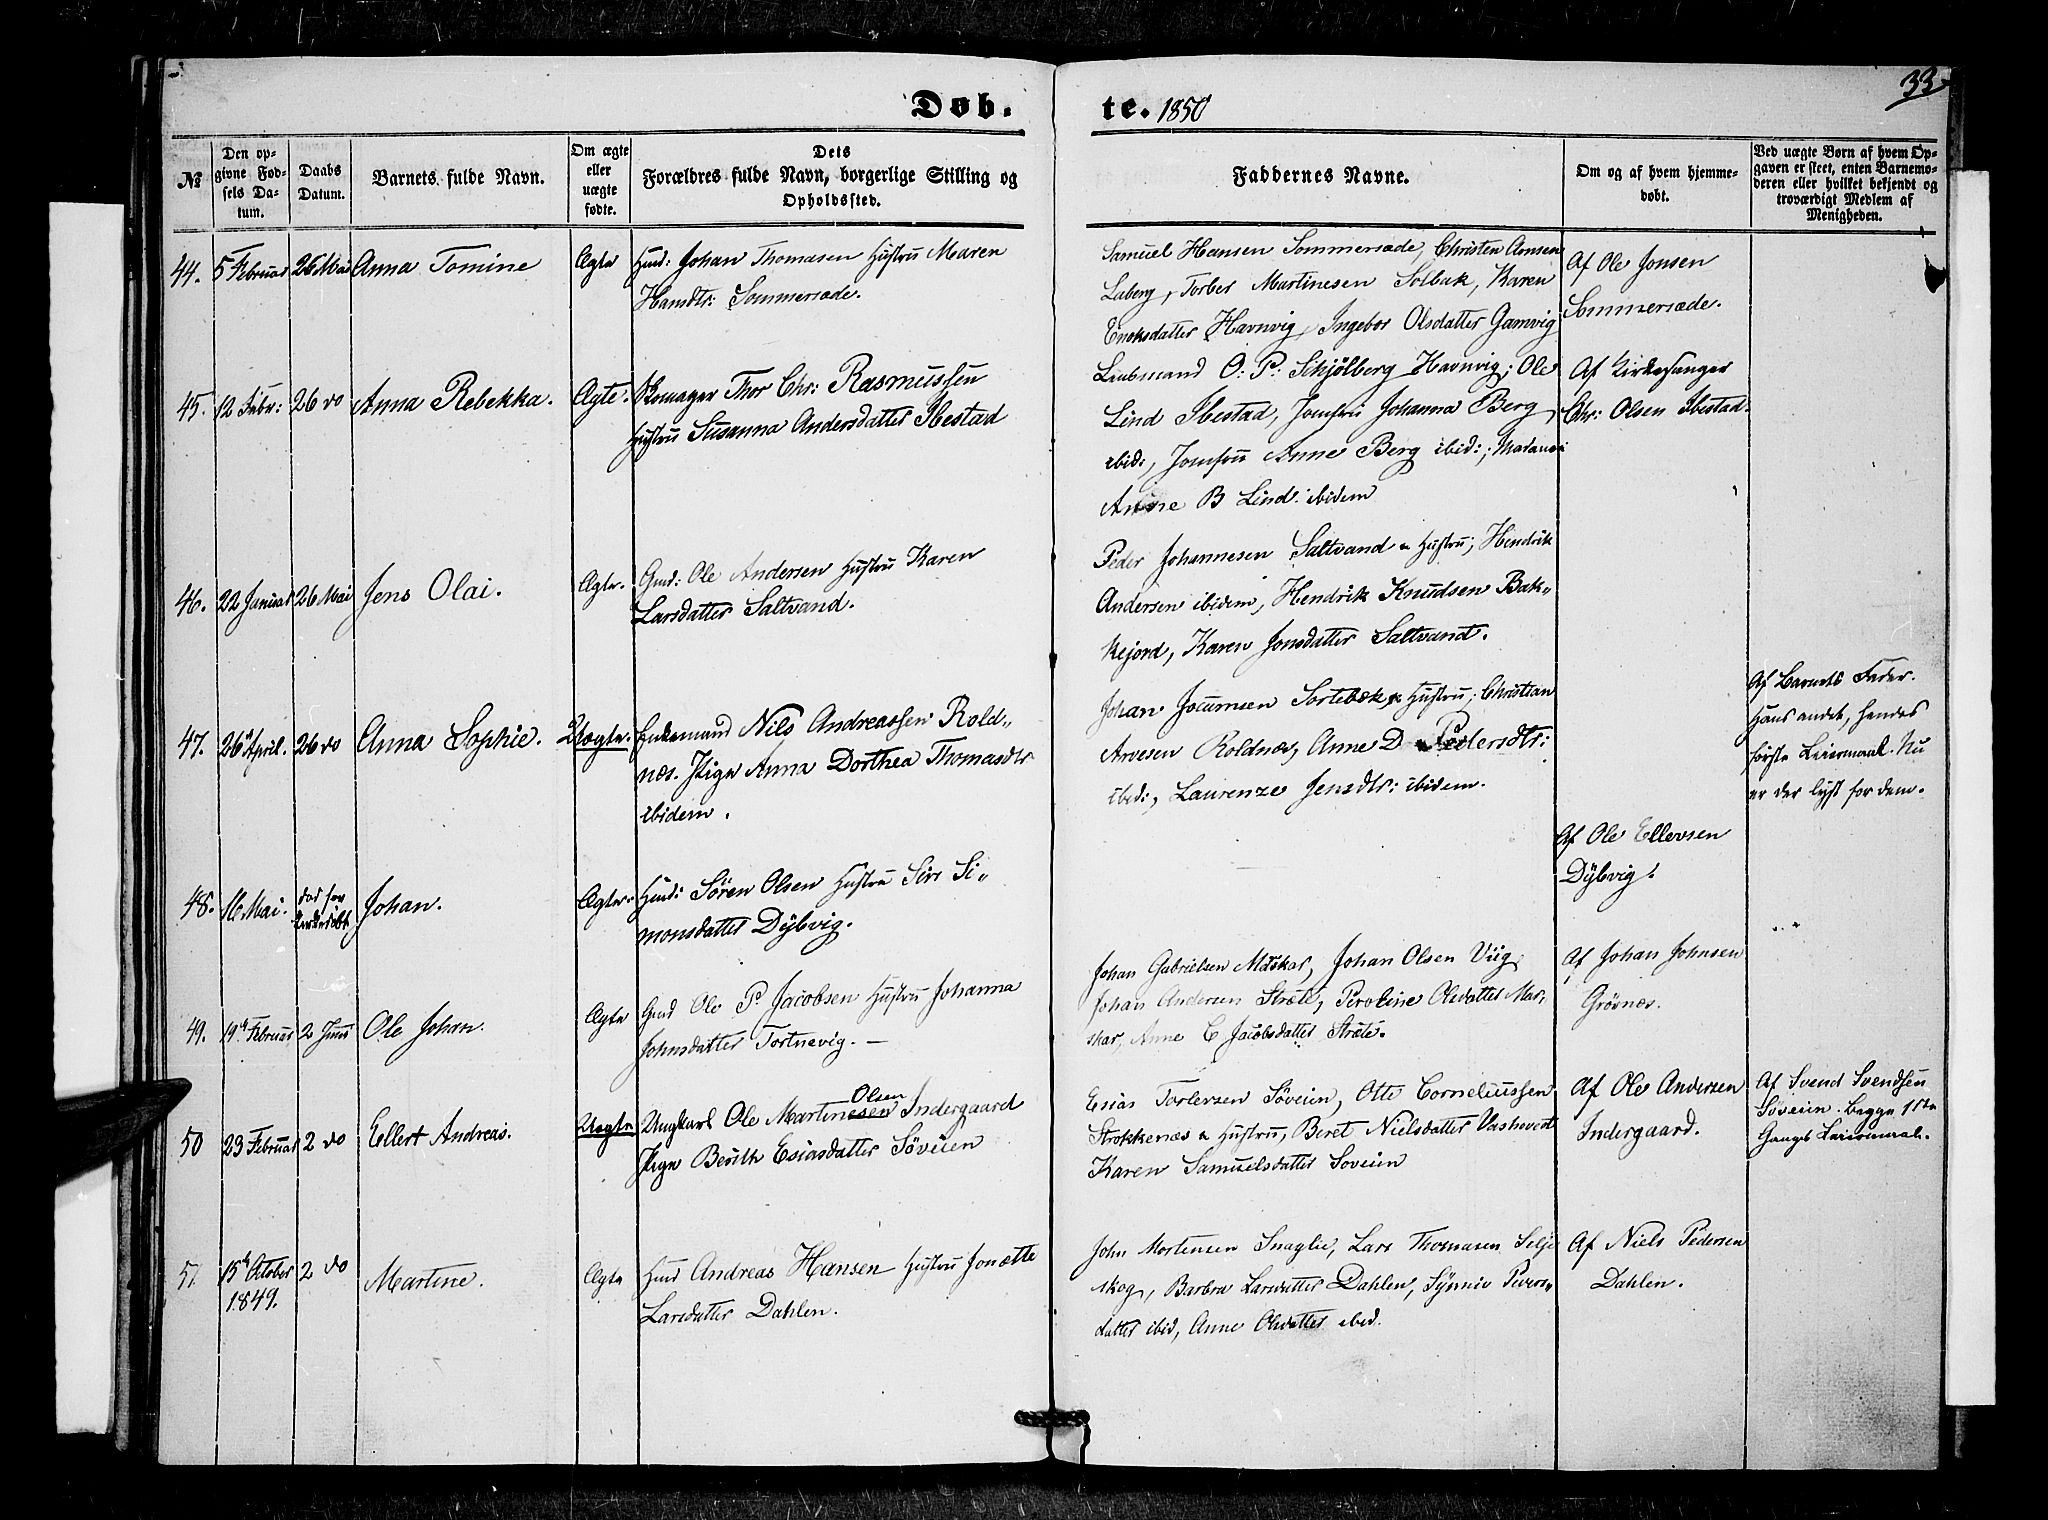 33
Døb.
te. 1850
№
Den op-
givne Fød-
sels Da-
tum.
Daabs
Datum.
Barnets fulde Navn.
Om ægte
eller
uægte
fødte.
Dets
Forældres fulde Navn, borgerlige Stilling og
Opholdssted.
Faddernes Navne.
Om og af hvem hjemme-
døbt.
Ved uægte Børn af hvem Op-
gaven er skeet, enten Barnemo-
deren eller hvilket bekjendt og
troværdigt Medlem af
Menigheden.
44. 5 Februar 26 Mai Anna Tomine Ægte Huusm: Johan Thomasen Hustru Maren
Hansdtr: Sommersæde.
Samuel Hansen Sommersæde, Christen Arnsen
Laberg, Torber Martinesen Solbak, Karen
Enoksdatter Havnvig, Ingebor Olsdatter Gamvig
Af Ole Jonsen
Sommersæde.
45. 12 Febr: 26 do Anna Rebekka. Ægte. Skomager Thor Chr: Rasmussen
Hustru Susanna Andersdatter Ibestad
Leubmand O: P: Schjölberg Havnvig; Ole
Lind Ibestad, Jomfru Johanna Berg
ibid:, Jomfru Anne Berg ibid:; Madame
Anne B Lind ibidem
Af Kirkesanger
Chr: Olsen Ibestad.
46. 22 Januar 26 Mai Jens Olai. Ægte. Gmd: Ole Andersen Hustru Karen
Larsdatter Saltvand.
Peder Johannesen Saltvand & Hustru; Hendrik
Andersen ibidem, Hendrik Knudsen Bak-
kejord, Karen Jonsdatter Saltvand.
47. 26 April. 26 do Anna Sophie. Uægte. Enkemand Nils Andreassen Rold-
næs. Pige Anna Dorthea Thomasdtr
ibidem.
Johan Jocumsen Sortebæk & Hustru; Christian
Arvesen Roldnæs, Anne D Pedersdtr:
ibid:, Laurenze Jensdtr: ibidem.
Af Barnets Fader.
Hans andet, hendes
første Leiermaal. Nu
er der lyst for dem.
48. 16 Mai. død før
Johan. Ægte. Huusm: Sören Olsen Hustru Siri Si-
monsdatter Dÿbvig.
Af Ole Ellevsen
Dÿbvig.
49. 19 Februar 2 Juni Ole Johan. Ægte Gmd Ole P. Jacobsen Hustru Johanna
Johnsdatter Tortnevig. —
Johan Gabrielsen Maskar, Johan Olsen Viig
Johan Andersen Stræte, Peroline Olsdatter Mas-
skar, Anne C Jacobsdatter Stræte.
Af Johan Johnsen
Grovnæs.
Olsen
50 23 Februar 2 do Ellert Andreas. Uægte Ungkarl Ole Martinesen Indergaard
Pige Berith Esiasdatter Söveien
Esias Torlevsen Söveien, Otte Corneliussen
Strokkenæs & Hustru, Beret Nielsdatter Vashoved
Karen Samuelsdatter Soveien
Af Ole Andersen
Indergaard.
Af Svend Svendsen
Söveien. Begge 1ste
Gangs Leiermaal.
51 15 October
1849. 2 do Martine. Ægte Huusm Andreas Hansen Hustru Jonette
Larsdatter Dahlen.
John Mortensen Snaglie, Lars Thomasen Selje
skog, Barbra Larsdatter Dahlen, Synnive Peders-
datter ibid, Anne Olsdatter ibid.
Af Niels Pedersen
Dahlen.